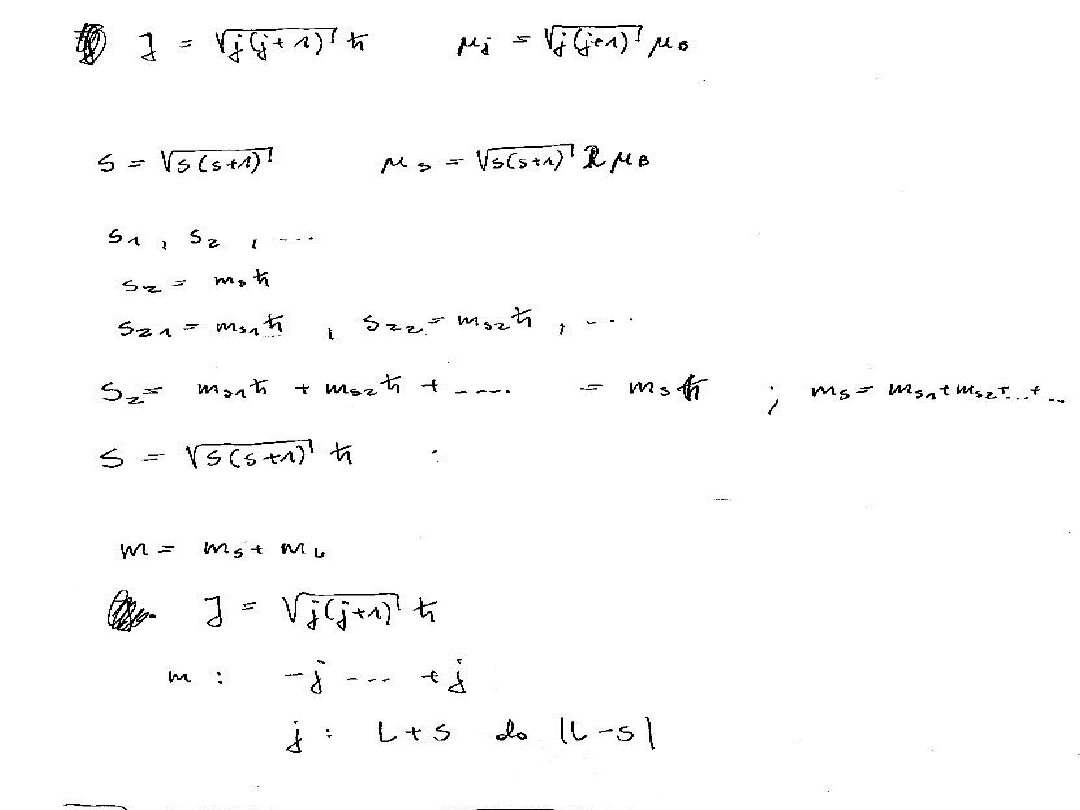 J = √j(j+1) ħ μj = √j(j+1) μB
S = √s(s+1) μs = √s(s+1) 2 μB
s1 , s2 , ...
sz = ms ħ
sz1 = ms1 ħ , sz2 = ms2 ħ , ...
Sz = ms1 ħ + ms2 ħ + .... = ms ħ ; ms = ms1 + ms2 + ... + ..
S = √s(s+1) ħ .
m = ms + mL
J = √j(j+1) ħ
m : -j --- +j
j : L+S do |L-S|